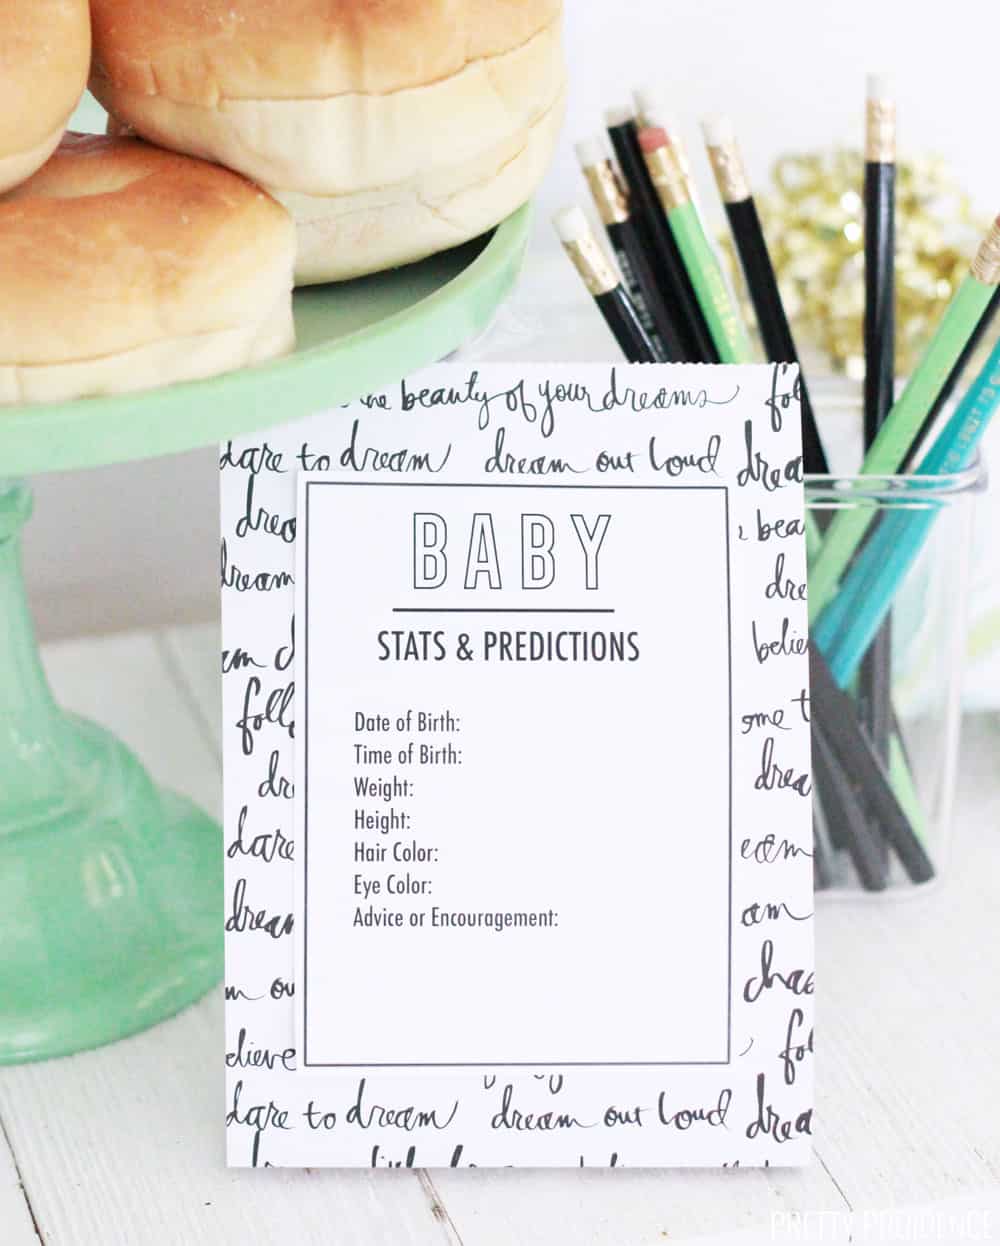 the beauty of your dreams fol
dare to dream dream out loud drea
dreo
dream
am d
foll
dr
dare
dream
m ou
elieve
BABY
STATS & PREDICTIONS
Date of Birth:
Time of Birth:
Weight:
Height:
Hair Color:
Eye Color:
Advice or Encouragement:
bea
dre
believ
ome t
drea
eam
am
chas
fol
dare to dream dream out loud drea
PRETTY PROVIDENCE